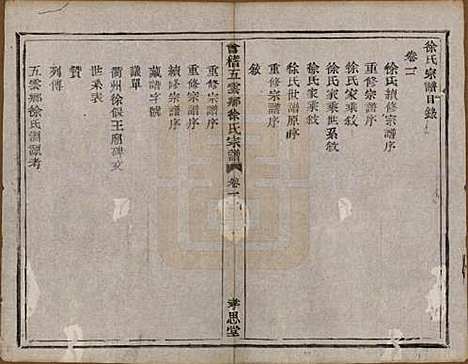 徐氏宗譜目錄
卷一
徐氏續修宗譜序
重修宗譜序
徐氏家乘敘
徐氏家乘世系敘
徐氏家乘敘
徐氏世譜原序
重修宗譜序
敘
會稽五雲鄉徐氏宗譜
卷一
孝思堂
重修宗譜序
續修宗譜序
藏譜字號
議單
衢州徐偃王廟碑文
世系表
贊
列傳
五雲鄉徐氏淵源考